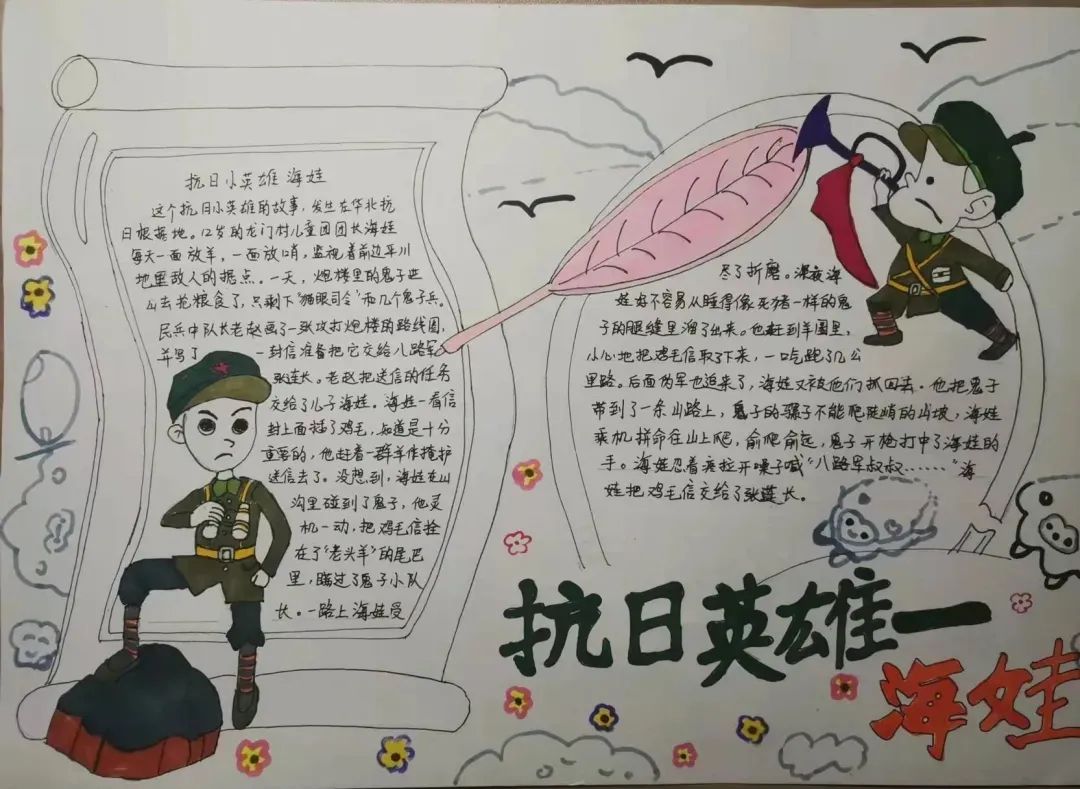 抗日小英雄 海娃
这个抗日小英雄的故事，发生在华北抗
日根据地。12岁的龙门村儿童团团长海娃
每天一面放羊，一面放哨，监视着前边平川
地里敌人的据点。一天，炮楼里的鬼子进
山去抢粮食了，只剩下"猫眼司令"和几个鬼子兵。
民兵中队长老赵画了一张攻打炮楼的路线图，
并写了一封信准备把它交给八路军
张连长。老赵把送信的任务
交给了儿子海娃。海娃一看信
封上面插了鸡毛，知道是十分
重要的，他赶着一群羊作掩护
送信去了。没想到，海娃在山
沟里碰到了鬼子，他灵
机一动，把鸡毛信拴
在了"老头羊"的尾巴
里，瞒过了鬼子小队
长。一路上海娃受
尽了折磨。深夜海
娃好不容易从睡得像死猪一样的鬼
子的眼缝里溜了出来。他赶到羊圈里，
小心地把鸡毛信取了下来，一口气跑了几公
里路。后面伪军也追来了，海娃又被他们抓回去。他把鬼子
带到了一条山路上，鬼子的骡子不能爬陡峭的山坡，海娃
乘机拼命往山上爬，俞爬俞远，鬼子开枪打中了海娃的
手。海娃忍着疼拉开嗓子喊"八路军叔叔……"海
娃把鸡毛信交给了张莲长。
抗日英雄一
海娃